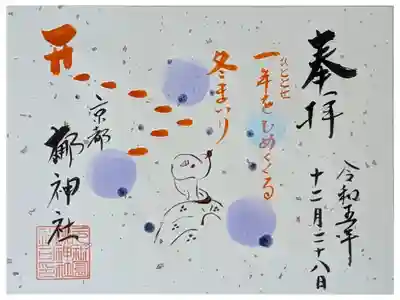 奉拝
令和五年
十二月二十八日
ひととせ
一年をしめくくる
冬まいり
京都
梛神社